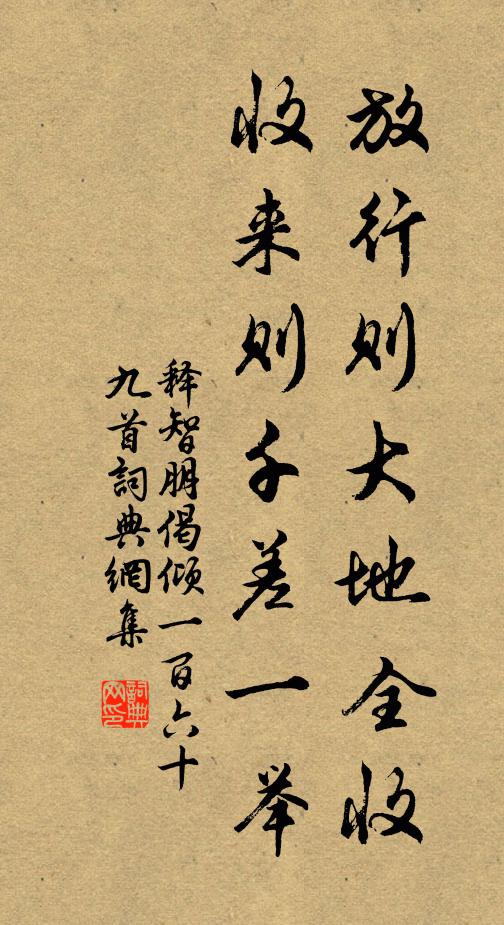 放行则大地全收
收来则千差一举
释智朋偈倾一百六十
九首詞典網集
詞典
网印